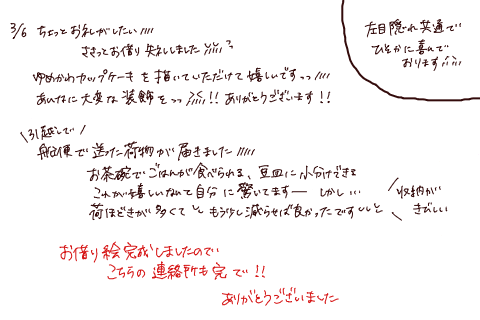 3/6 ちょっとお久しがしたい////
ささっとお借り失礼しました////っ
ゆめかわカップケーキを描いていただけて嬉しいですっっ////
あんなに大変な装飾をっっ////!! ありがとうございます!!
左目隠れ共通で
ひそかに喜んで
おります////
\引越しで/
船便で送った荷物が届きました/////
お茶碗でごはんが食べられる、豆皿に小分けできる
これが嬉しいなんて自分に驚いてますー しかし…
荷ほどきが多くて もう少し減らせば良かったです
収納が
きびしい
お借り絵完成しましたので
こちらの連絡所も完で!!
ありがとうございました